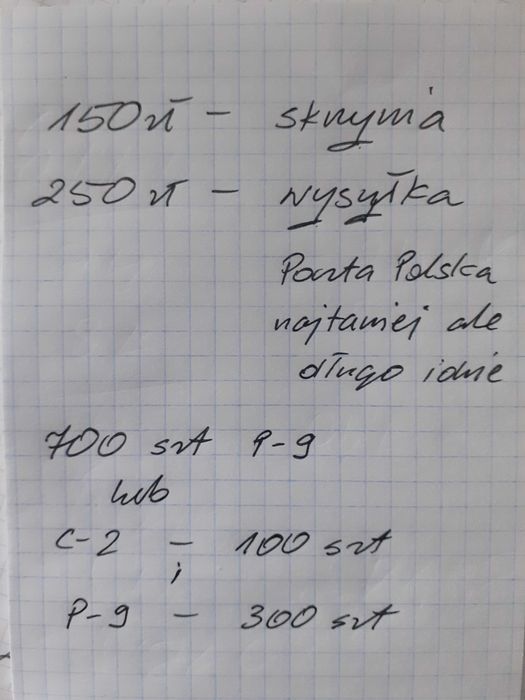 150 zł - skrzynia
250 zł - wysyłka
Poczta Polska
najtaniej ale
długo idzie
700 szt P-9
lub
C-2 - 100 szt
i
P-9 - 300 szt